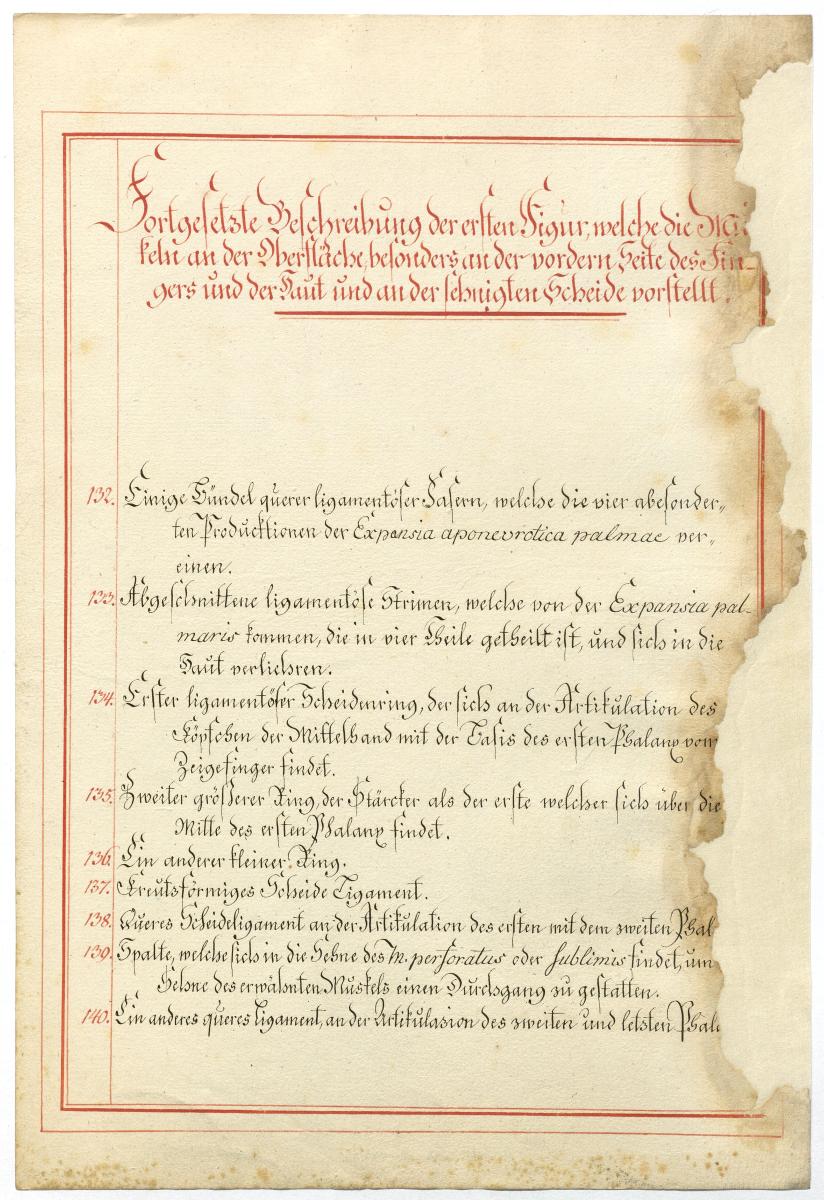 Fortgesetzte Beschreibung der ersten Figur, welche die Mu
keln an der Oberfläche, besonders an der vordern Seite des Fin-
gers und der Haut und an der sehnigten Scheide vorstellt.
132. Einige Bündel querer ligamentöser Fasern, welche die vier abesonder„
ten Producktionen der Expansia aponevrotica palmae ver„
einen.
133. Abgeschnittene ligamentöse Strimen, welche von der Expansia pal-
maris kommen, die in vier Theile getheilt ist, und sich in die
Haut verliehren.
134. Erster ligamentöser Scheidenring, der sich an der Artikulation des
Köpfchen der Mittelhand mit der Basis des ersten Phalanx vom
Zeigefinger findet.
135. Zweiter größerer Ring, der Stärcker als der erste welcher sich über die
Mitte des ersten Phalanx findet.
136. Ein anderer kleiner Ring.
137. Kreutsförmiges Scheide Ligament.
138. Queres Scheideligament an der Artikulation des ersten mit dem zweiten Phal
139. Spalte, welche sich in die Sehne des M. perforatus oder sublimis findet, um
Sehne des erwähnten Muskels einen Durchgang zu gestatten.
140. Ein anderes queres Ligament, an der Artikulasion des zweiten und letsten Phal